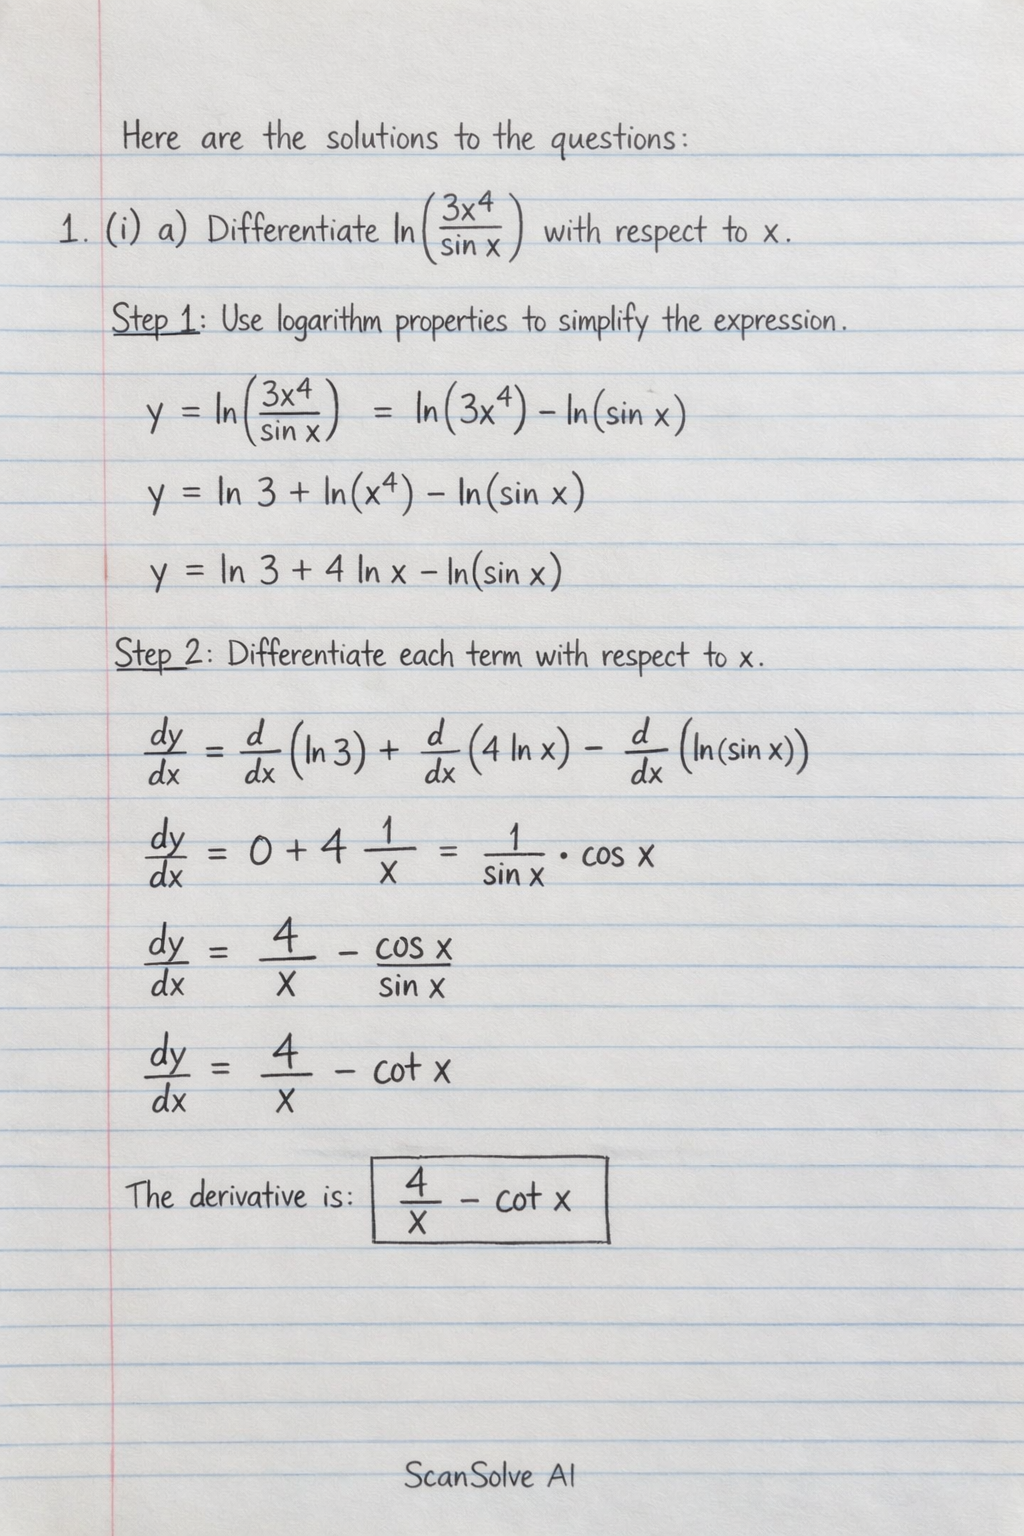 Here are the solutions to the questions:
1. (i) a) Differentiate ln(3x⁴/sin x) with respect to x.
Step 1: Use logarithm properties to simplify the expression.
y = ln(3x⁴/sin x) = ln(3x⁴) − ln(sin x)
y = ln 3 + ln(x⁴) − ln(sin x)
y = ln 3 + 4 ln x − ln(sin x)
Step 2: Differentiate each term with respect to x.
dy/dx = d/dx (ln 3) + d/dx (4 ln x) − d/dx (ln(sin x))
dy/dx = 0 + 4 1/x = 1/sin x · cos x
dy/dx = 4/x − cos x/sin x
dy/dx = 4/x − cot x
The derivative is: 4/x − cot x
ScanSolve AI